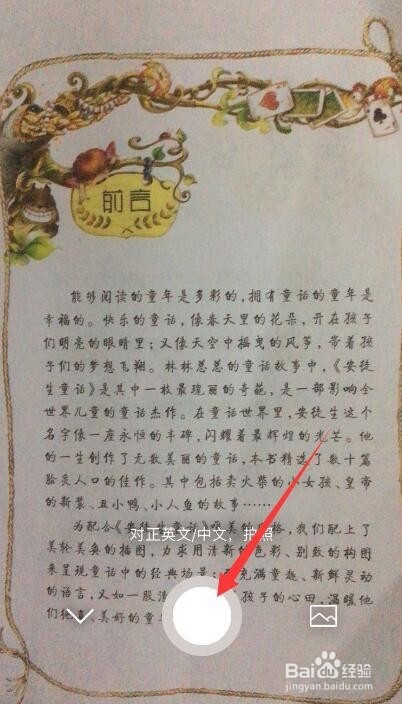 前言
能够阅读的童年是多彩的,拥有童话的童年是
幸福的。快乐的童话,像春天里的花朵,开在孩子
们明亮的眼睛里;又像天空中摇曳的风筝,带着孩
子们的梦想飞翔。林林总总的童话故事中,《安徒
生童话》是其中一枚最瑰丽的奇葩,是一部影响全
世界儿童的童话杰作。在童话世界里,安徒生这个
名字像一座永恒的丰碑,闪耀着最辉煌的光芒。他
的一生创作了无数美丽的童话,本书精选了数十篇
脍炙人口的佳作。其中包括卖火柴的小女孩、皇帝
的新装、丑小鸭、小人鱼的故事……
为配合《安徒生童话》美的风格,我们配上了
对正英文/中文,拍照
美轮美奂的插图,力求用清新的色彩、别致的构图
来呈现童话中的经典场景;充满童趣、新鲜灵动
的语言,又如一股清 孩子的心田,温暖他
们纯真、美好的童
Baidu百科经验
jingyan.baidu.com